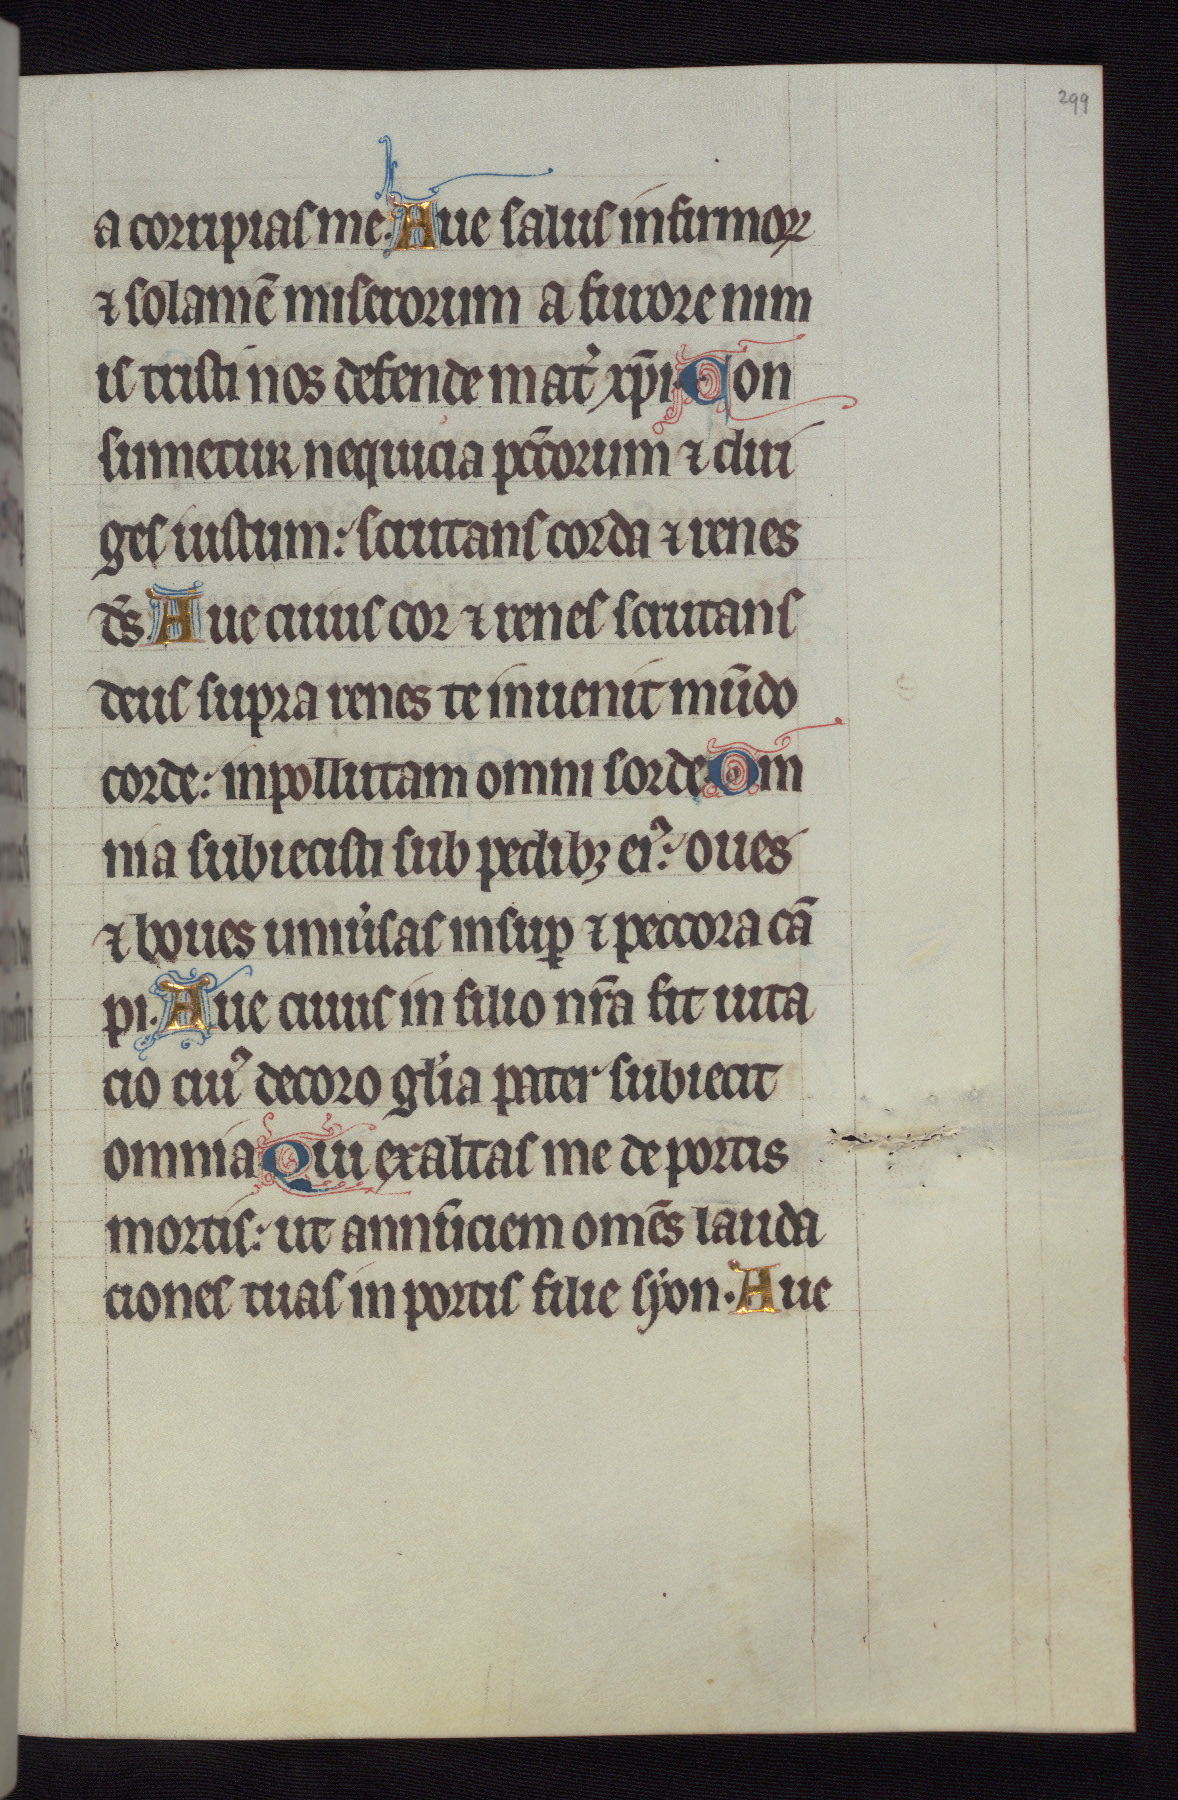 299
a corripias me. Aue salus infirmoꝝ
⁊ solamē miserorum a furore nim
is tristi nos defende mat̉ xp̄i. Con
sumetur nequicia pc̄corum ⁊ diri
ges iustum: scrutans corda ⁊ renes
d̄s Aue cuius cor ⁊ renes scrutans
deus supra renes te inuenit mūdo
corde: inpollutam omni sorde. Om
nia subiecisti sub pedibꝫ eiꝰ: oues
⁊ boues uniu̓sas insuꝑ ⁊ peccora cā
pi. Aue cuius in filio nr̄a fit uita
cio cuiꝰ decoro gl̓ia pater subiecit
omnia Qui exaltas me de portis
mortis: ut annūciem om̄es lauda
ciones tuas in portis filie syon. Aue